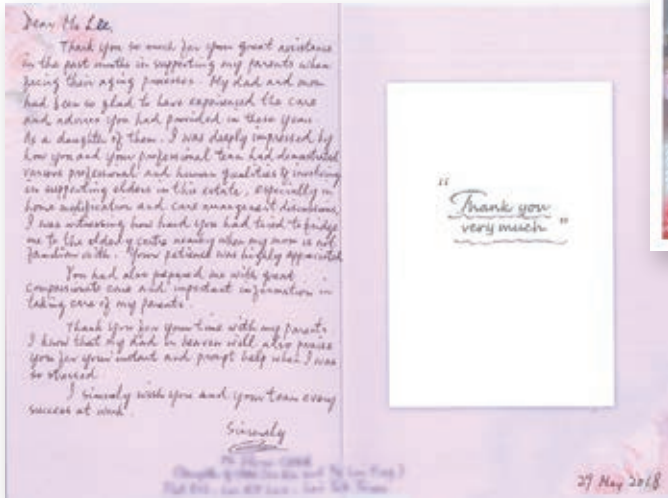 Dear Ms Lee,
Thank you so much for your great assistance
in the past months in supporting my parents when
facing their aging processes. My dad and mom
had been so glad to have experienced the care
and advices you had provided in these years.
As a daughter of them, I was deeply impressed by
how you and your professional team had demonstrated
various professional and human qualities of involving
in supporting elders in this estate, especially in
home modification and care management discussions.
I was witnessing how hard you had tried to bridge
me to the elderly centre nearby when my mom is not
familiar with. Your patience was highly appreciated.
You had also prepared me with great
compassionate care and important information in
taking care of my parents.
Thank you for your time with my parents.
I know that my dad in heaven will also praise
you for your instant and prompt help when I was
so stressed.
I sincerely wish you and your team every
success at work.
Sincerely
"Thank you
very much"
29 May 2018